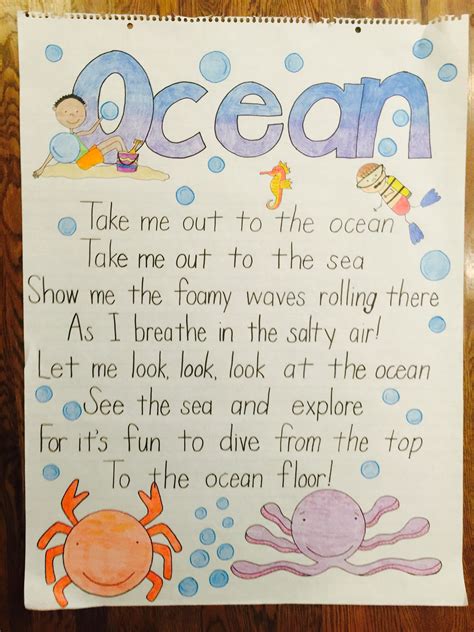 Ocean
Take me out to the ocean
Take me out to the sea
Show me the foamy waves rolling there
As I breathe in the salty air!
Let me look, look, look at the ocean
See the sea and explore
For it's fun to dive from the top
To the ocean floor!